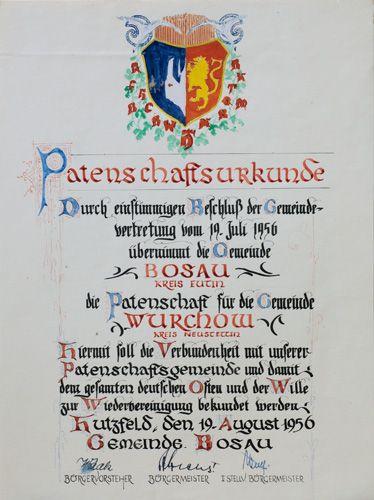 Patenschaftsurkunde
Durch einstimmigen Beschluß der Gemeinde-
vertretung vom 19. Juli 1956
übernimmt die Gemeinde
BOSAU
KREIS EUTIN
die Patenschaft für die Gemeinde
WURCHOW
KREIS NEUSTETTIN
Hiermit soll die Verbundenheit mit unserer
Patenschaftsgemeinde und damit
dem gesamten deutschen Osten und der Wille
zur Wiedervereinigung bekundet werden
Hutzfeld, den 19. August 1956
Gemeinde Bosau
BÜRGERVORSTEHER BÜRGERMEISTER I STELLV BÜRGERMEISTER